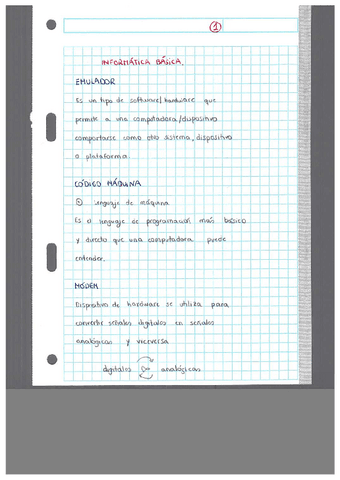 1
INFORMÁTICA BÁSICA.
EMULADOR
Es un tipo de software/hardware que
permite a una computadora/dispositivo
comportarse como otro sistema, dispositivo
o plataforma
CÓDIGO MÁQUINA
lenguaje de máquina
Es el lenguaje de programación más básico
y directo que una computadora puede
entender.
MÓDEM
Dispositivo de hardware se utiliza para
convertir señales digitales en señales
analógicas y viceversa
digitales analógicas